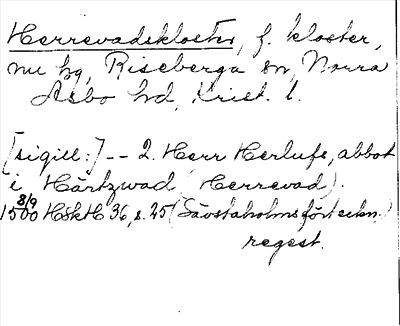 Herrevadskloster, f. kloster,
nu hg, Riseberga sn, Norra
Åsbo hd, Krist. l.
[sigill:] -- 2. Herr Herlufs, abbot
i Härtzwad (Herrevad).
8/9
1500 HSkH 36, s. 25 (Sävstaholms förteckn.)
regest.